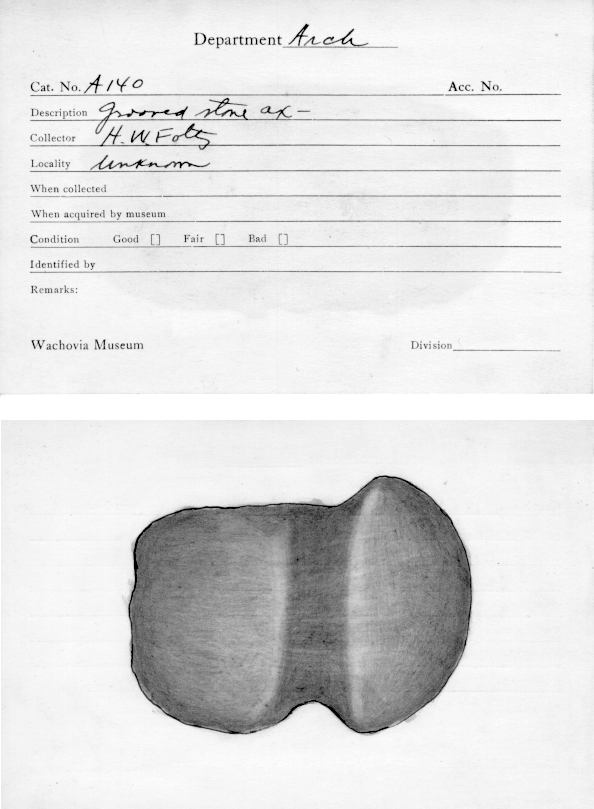 Department Arch
Cat. No. A140 Acc. No.
Description grooved stone ax-
Collector H. W. Foltz
Locality Unknown
When collected
When acquired by museum
Condition Good [] Fair [] Bad []
Identified by
Remarks:
Wachovia Museum Division